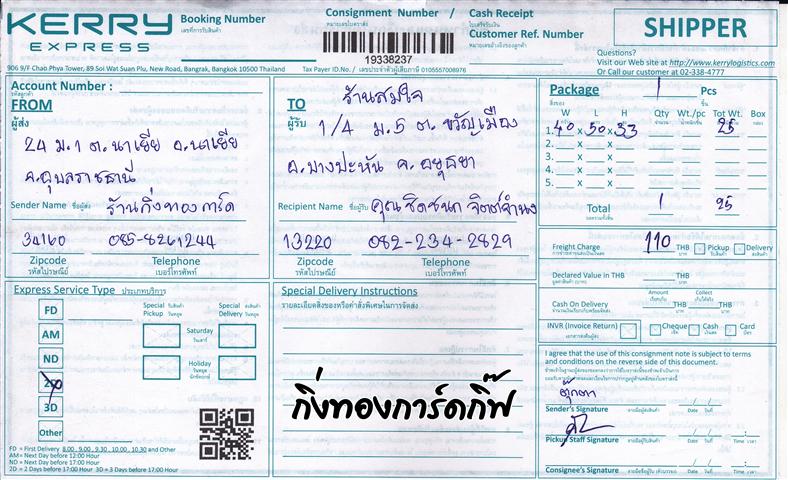 KERRY
EXPRESS
Booking Number
เลขที่การรับสินค้า
Consignment Number /
หมายเลขใบตราส่ง
19338237
Cash Receipt
ใบเสร็จรับเงิน
Customer Ref. Number
หมายเลขอ้างอิงของลูกค้า
SHIPPER
Questions?
Visit our Web site at http://www.kerrylogistics.com
Or Call our customer at 02-338-4777
906 9/F Chao Phya Tower, 89 Soi Wat Suan Plu, New Road, Bangrak, Bangkok 10500 Thailand
Tax Payer ID.No. / เลขประจำตัวผู้เสียภาษี 0105557008976
Account Number :
รหัสลูกค้า
FROM
ผู้ส่ง
24 ม.1 ต.นาเยีย อ.นาเยีย
จ.อุบลราชธานี
Sender Name ชื่อผู้ส่ง ร้านกิ่งทองการ์ด
34160 085-8261244
Zipcode Telephone
รหัสไปรษณีย์ เบอร์โทรศัพท์
TO
ผู้รับ
ร้านสมใจ
1/4 ม.5 ต. ขวัญเมือง
อ.บางปะหัน จ. อยุธยา
Recipient Name ชื่อผู้รับ คุณชิดชนก
13220 082-234-2829
Zipcode Telephone
รหัสไปรษณีย์ เบอร์โทรศัพท์
Package 1 Pcs
สิ่งของ ชิ้น
W L H Qty Wt./pc Tot Wt. Box
1. 40 x 50 x 33 25
2. x x
3. x x
4. x x
5. x x
Total 1 25
Freight Charge 110 THB Pickup Delivery
Declared Value in THB THB
Amount Collect
Cash On Delivery THB THB
INVR (Invoice Return) Cheque Cash Card
I agree that the use of this consignment note is subject to terms
and conditions on the reverse side of this document.
ตุ๊กตา
Sender's Signature Date วันที่
Pickup Staff Signature Date วันที่ Time เวลา
Consignee's Signature Date วันที่ Time เวลา
Express Service Type ประเภทบริการ
FD
AM
ND
2D
3D
Other
Special Pickup รับสินค้าวันหยุด
Special Delivery ส่งสินค้าวันหยุด
Saturday
วันเสาร์
Holiday
วันหยุด
นักขัตฤกษ์
FD = First Delivery 8.00 , 9.00 , 9.30 , 10.00 , 10.30 and Other
AM= Next Day before 12:00 Hour
ND = Next Day before 17:00 Hour
2D = 2 Days before 17:00 Hour 3D = 3 Days before 17:00 Hour
Special Delivery Instructions
รายละเอียดสิ่งของหรือคำสั่งพิเศษในการจัดส่ง
กิ่งทองการ์ดกิ๊ฟ